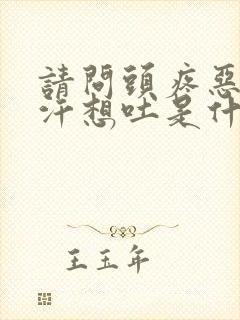 請問頭疼惡
汗想吐是什
王玉年